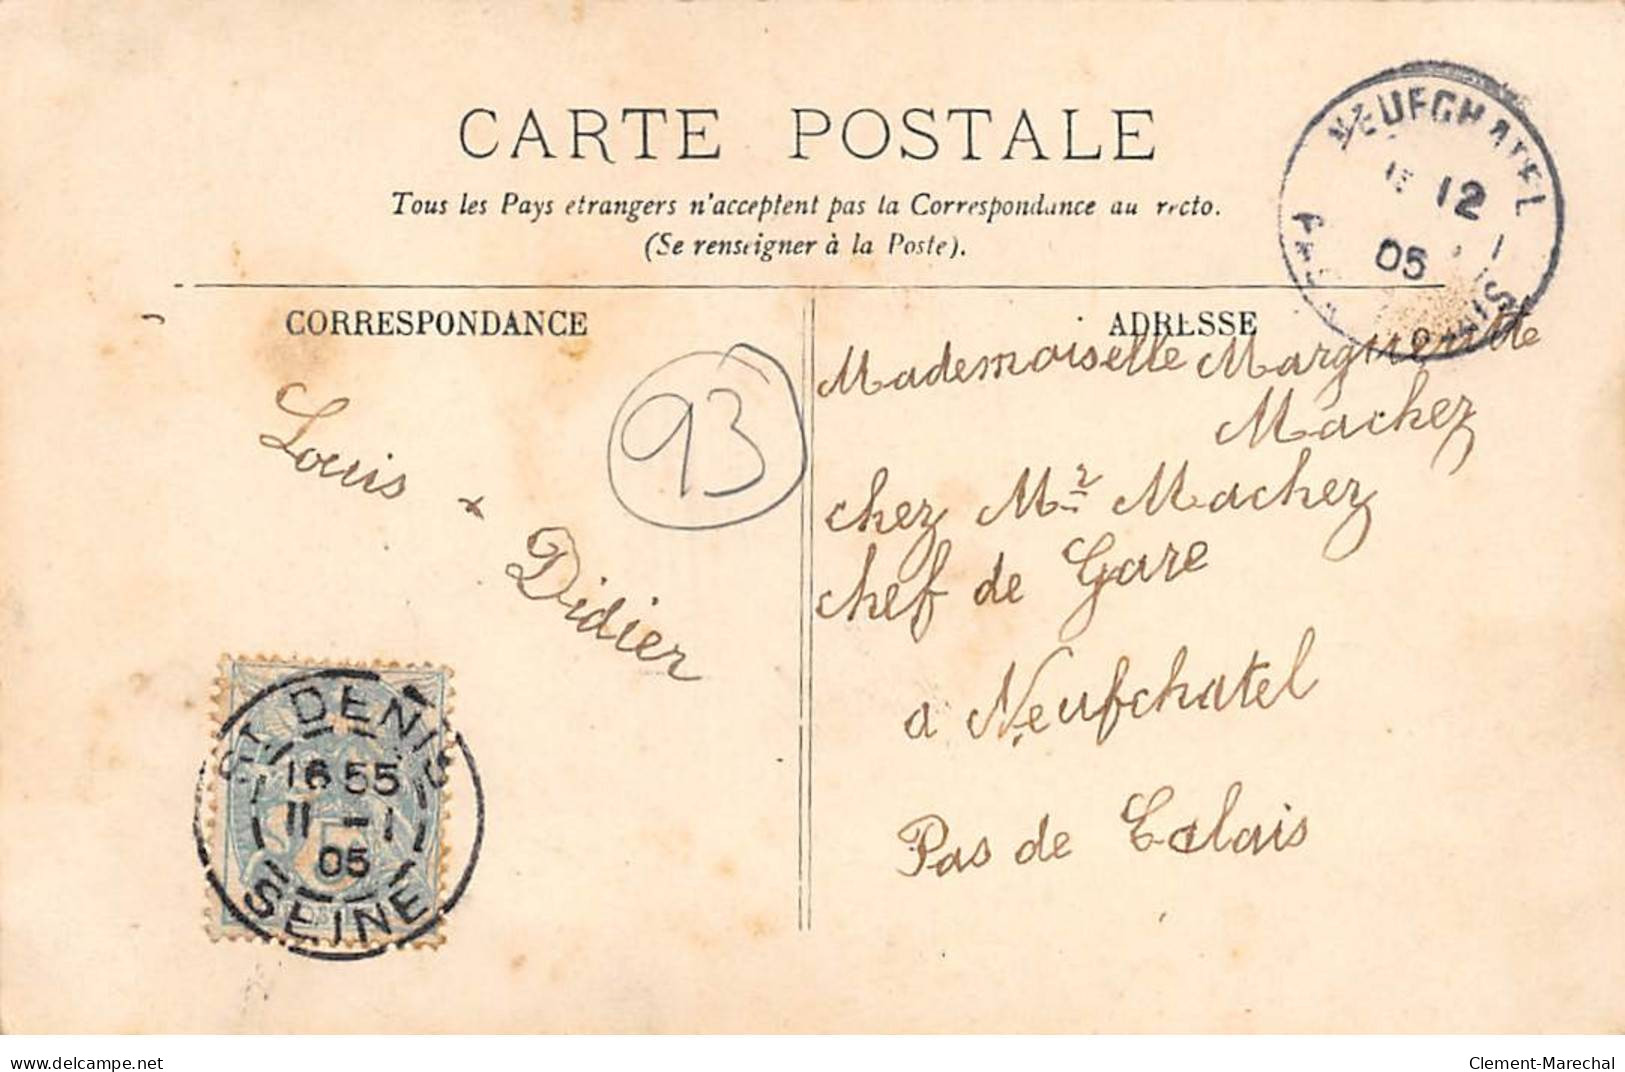 CARTE POSTALE
Tous les Pays etrangers n'acceptent pas la Correspondance au recto.
(Se renseigner à la Poste).
CORRESPONDANCE
Louis x Didier
93
ST DENIS
16 55
11 - 1
05
SEINE
ADRESSE
Mademoiselle Marguerite
Machez
chez Mr Machez
chef de Gare
a Neufchatel
Pas de Calais
NEUFCHATEL
12 - 1
05
delcampe.net
Clement-Marechal